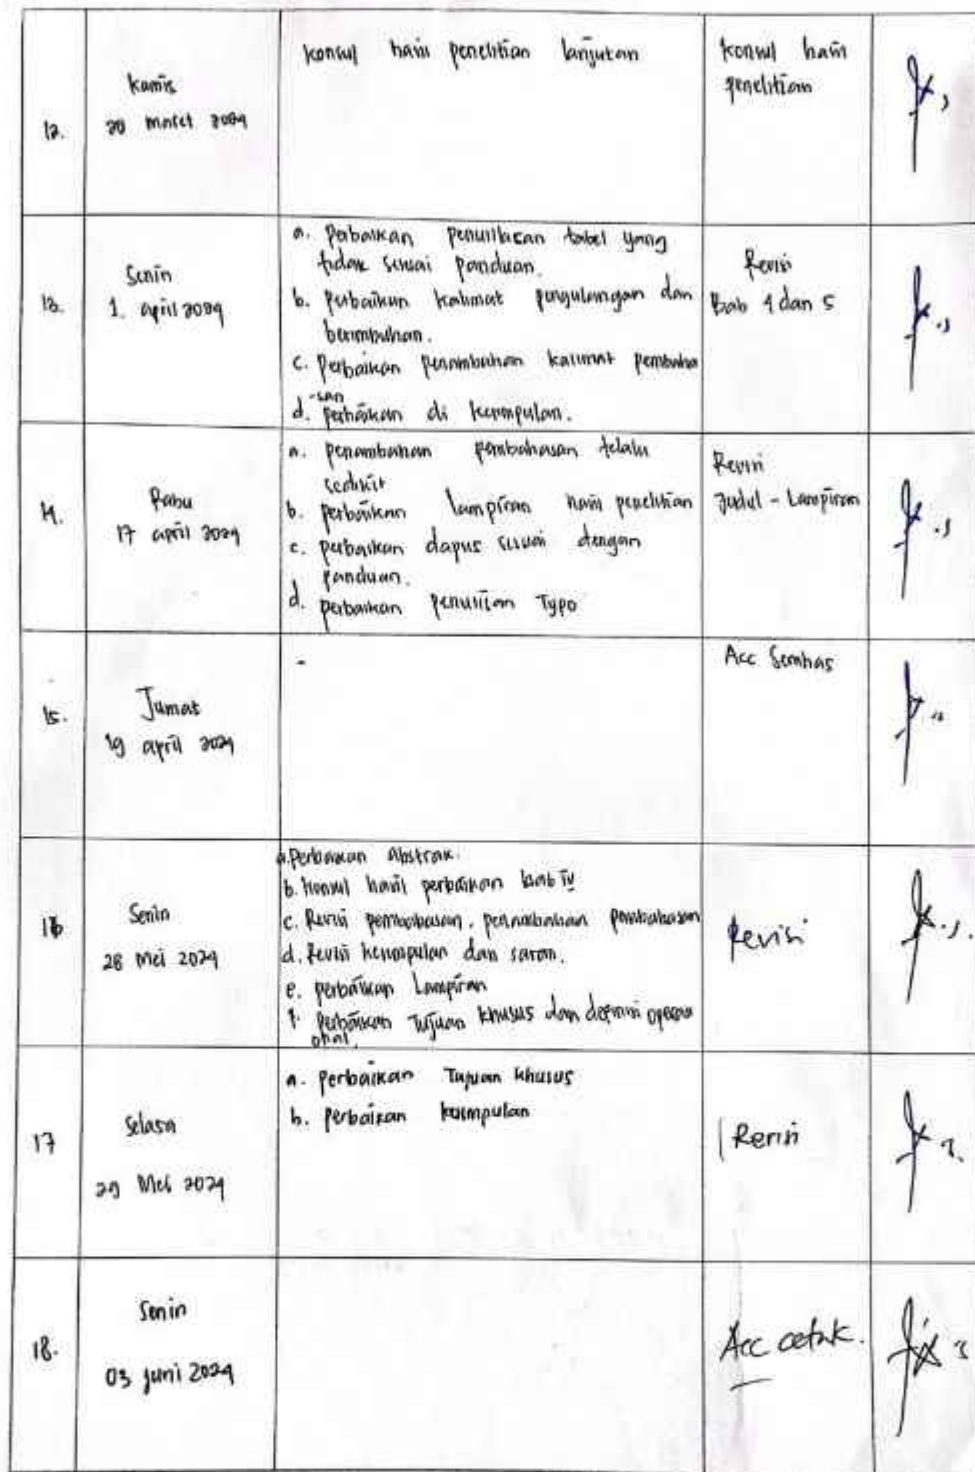 12.
Kamis
20 Maret 2024
Konsul hasil penelitian lanjutan
Konsul hasil
penelitian
13.
Senin
1. april 2024
a. Perbaikan penulisan tabel yang
tidak sesuai panduan.
b. perbaikan kalimat pengulangan dan
berimbuhan.
c. Perbaikan penambahan kalimat pembaha
-san
d. perbaikan di kesimpulan.
Revisi
Bab 4 dan 5
14.
Rabu
17 april 2024
a. penambahan pembahasan telalu
sedikit
b. perbaikan lampiran hasil penelitian
c. perbaikan dapus sesuai dengan
panduan.
d. perbaikan penulisan Typo
Revisi
Judul - Lampiran
15.
Jumat
19 april 2024
-
Acc Semhas
16
Senin
28 Mei 2024
a. Perbaikan Abstrak.
b. Konsul hasil perbaikan bab IV
c. Revisi pembahasan, penambahan pembahasan
d. Revisi kesimpulan dan saran.
e. perbaikan Lampiran
f. Perbaikan Tujuan khusus dan definisi operasi
onal.
Revisi
17
Selasa
29 Mei 2024
a. perbaikan Tujuan khusus
b. perbaikan kesimpulan
Revisi
18.
Senin
03 juni 2024
Acc cetak.